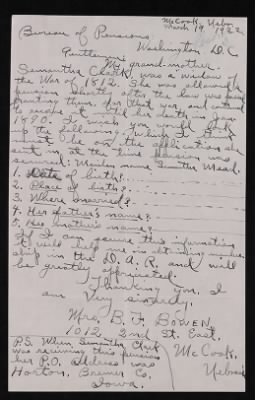 McCook, Nebr.
March 19 1922
Bureau of Pensions,
Washington D.C.
Gentlemen:
My grand-mother,
Samantha Clark, was a widow of
the War of 1812. She was allowed a
pension shortly after the law was passed
granting them, for that war, and continued
to receive it until her death in Jan
1890. I wish you would look
up the following, which I
must be on the application she
sent in at the time pension was
secured. Maiden name Samantha Mead.
1. Date of birth?
2. Place of birth?
3. Where married?
4. Her father's name?
5. Her mother's name?
If I can secure this information
it will help me in obtaining member-
ship in the D.A.R. and will
be greatly appreciated.
Thanking you, I
am Very sincerely,
Mrs. B. F. BOWEN
1012 2nd St. East.
McCook,
Nebr.
P.S. When Samantha Clark
was receiving this pension
her P.O. Address was
Horton, Bremer Co,
Iowa.